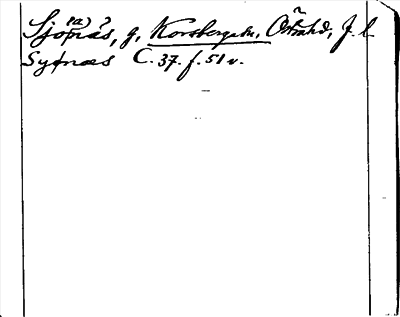 Sjö(a)näs, g, Korsberga sn, Östra hd, J. l.
Syönæs C. 37. f. 51 v.